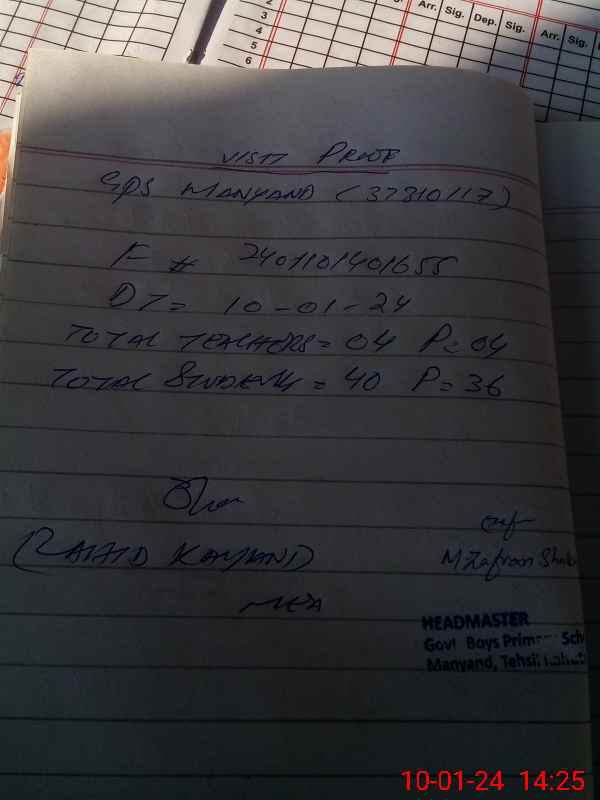 2
3
4
5
6
Arr. Sig. Dep. Sig. Arr. Sig.
VISIT PROOF
GPS MANYAND (37310117)
F # 2401101401655
DT= 10-01-24
TOTAL TEACHERS = 04 P=04
TOTAL Students = 40 P=36
KAYANI)
MEA
M Zafran Shab
HEADMASTER
Govt Boys Sch
Manyand, Tehsil
10-01-24 14:25